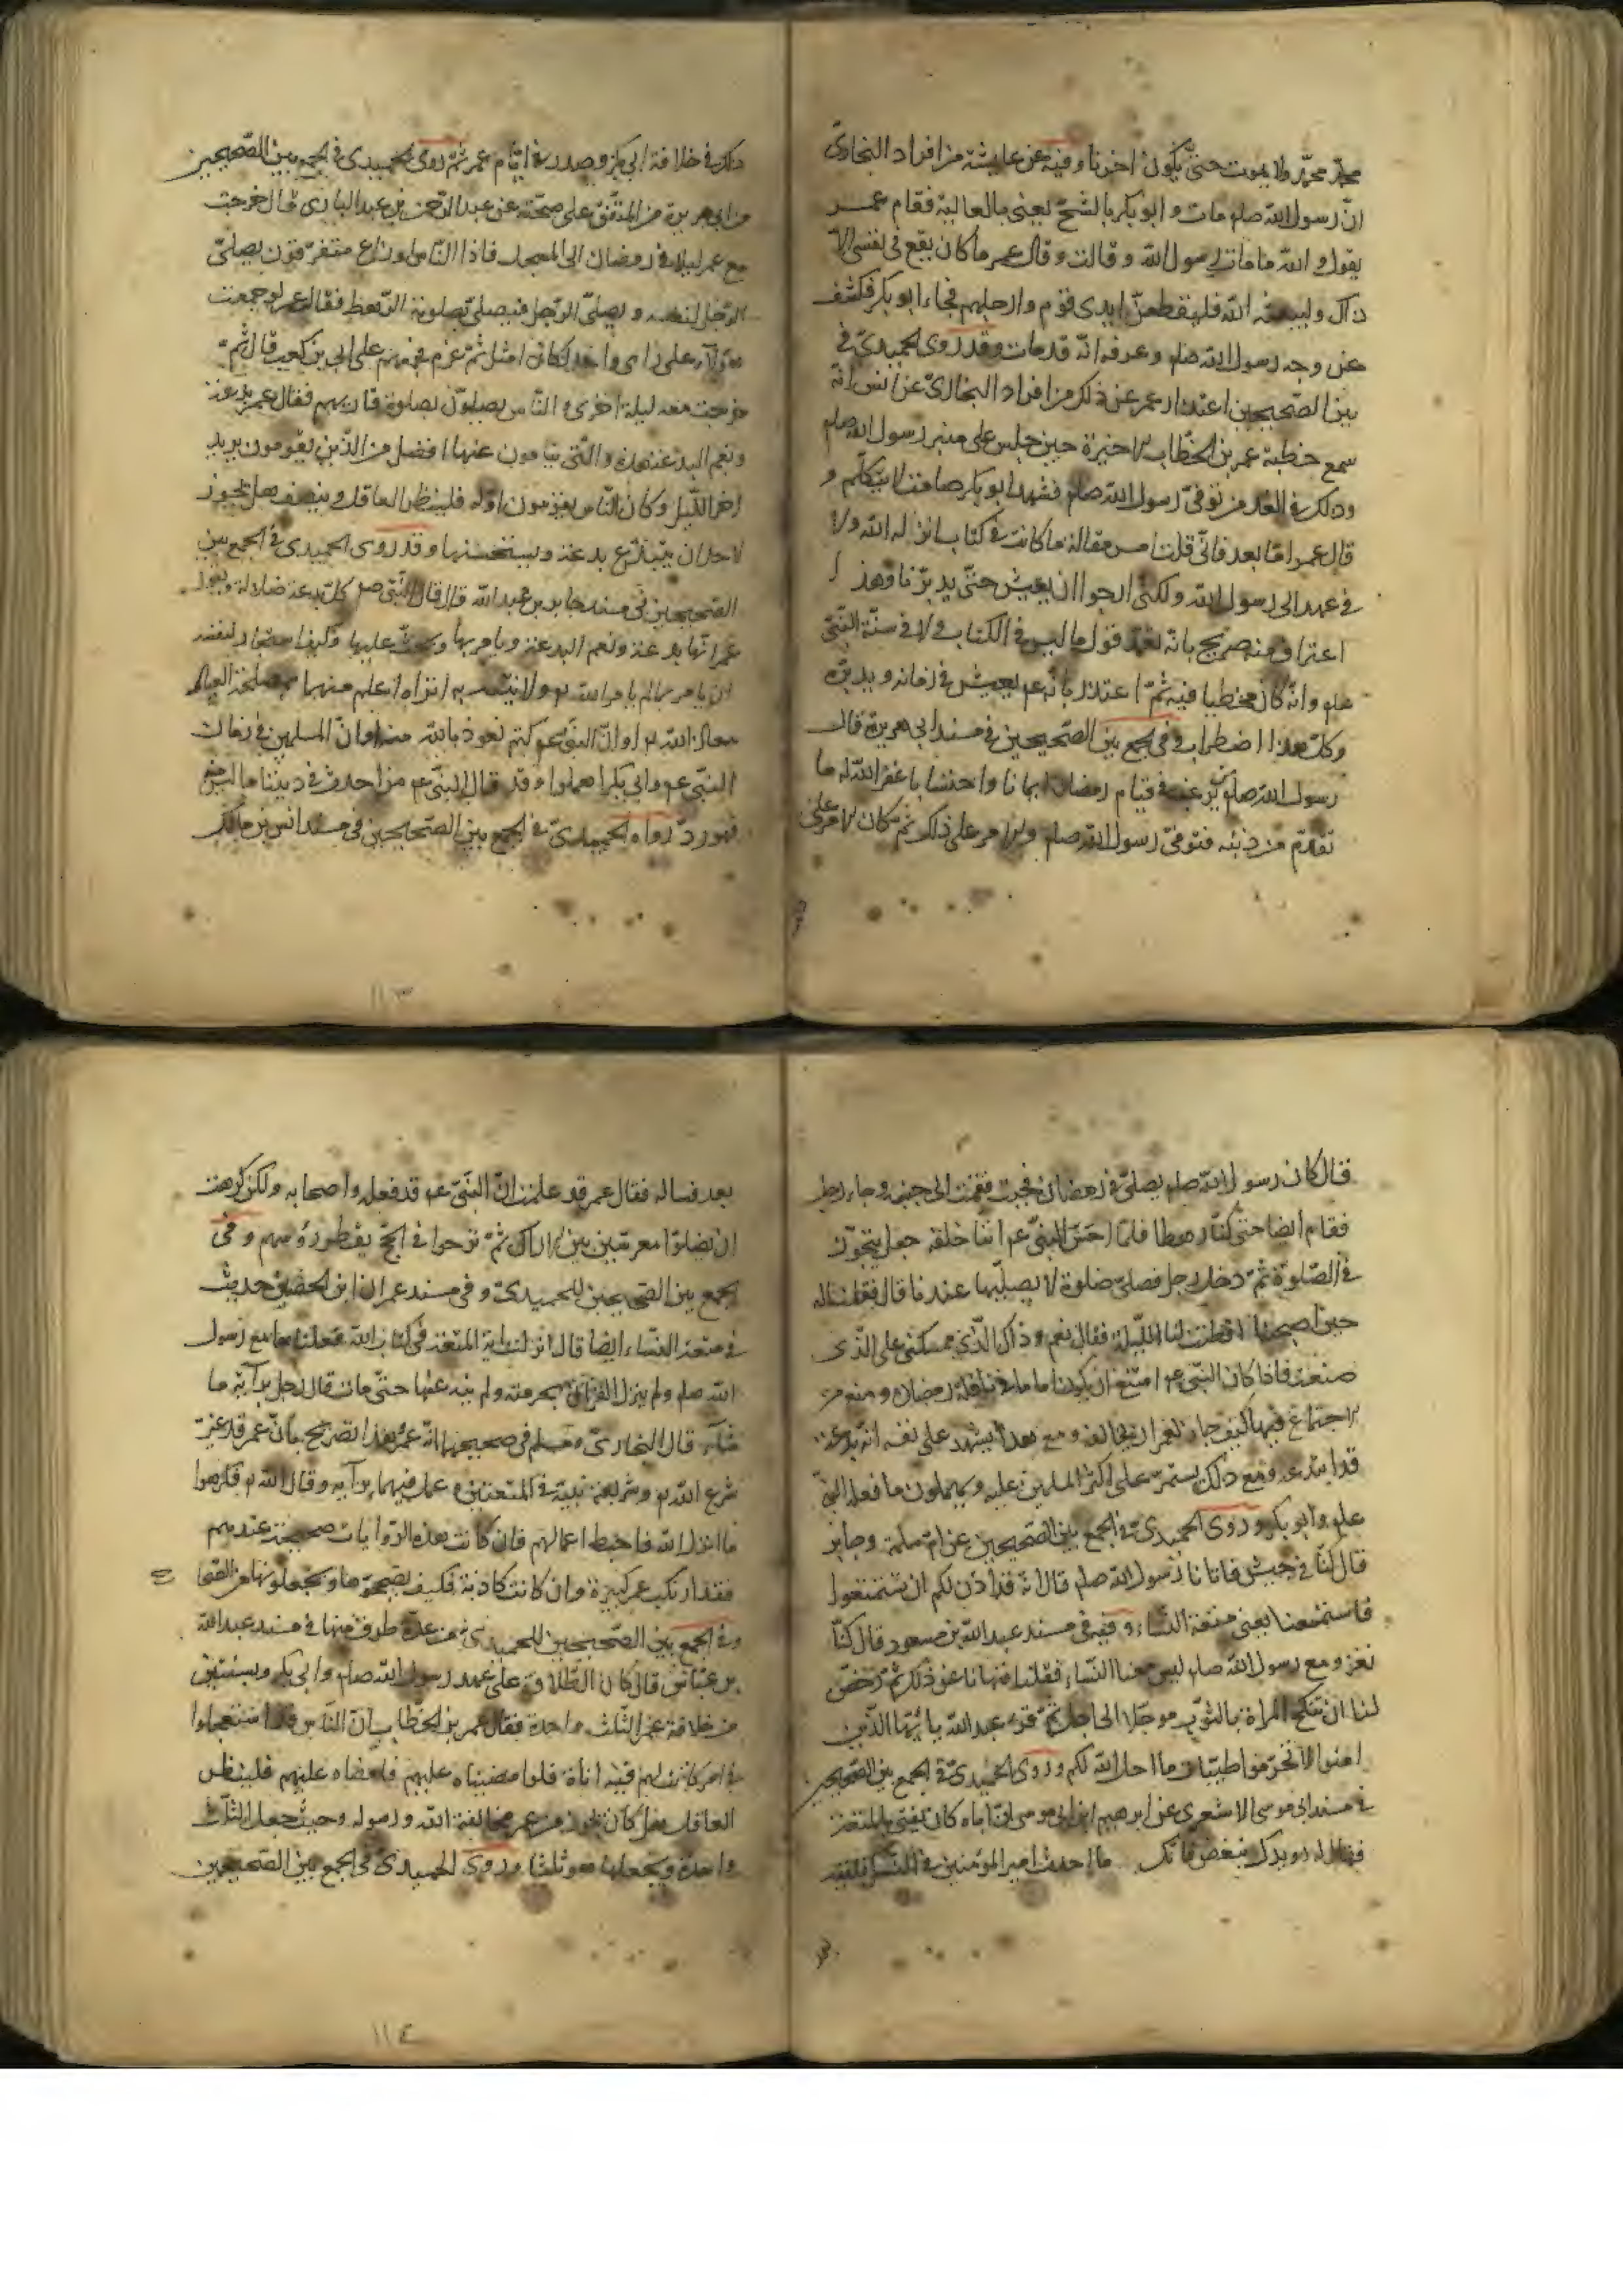 محمّد ولا يموت حتّى يكون اخرنا وفيه عن عايشة من افراد البخارىّ
انّ رسول الله صلم مات و ابو بكر بالسّنح يعنى بالعالية فقام عمر
يقول و الله ما مات رسول الله و قالت و قال عمر ما كان يقع فى نفسى الّا
ذاك وليبعثه الله فليقطعنّ ايدى قوم وارجلهم فجاء ابو بكر فكشف
عن وجه رسول الله صلم وعرفه انّه قد مات وقد روى الحميدىّ فى
بين الصّحيحين اعتذار عمر عن ذلك من افراد البخارىّ عن انس انّه
سمع خطبة عمر بن الخطّاب الاخيرة حين جلس على منبر رسول الله صلم
وذلك فى الغد من توفّى رسول الله صلم فشهد ابو بكر صامت لا يتكلّم و
قال عمر امّا بعد فانّى قلت امس مقالة ما كانت فى كتاب انزله الله ولا
فى عهد الى رسول الله ولكنّى ارجوا ان يعيش حتّى يدبّرنا وهذا
اعتراف منه صريح بانّه تعمّد قول ما ليس فى الكتاب ولا فى سنّة النّبىّ
علم وانّه كان مخطيا فيه ثمّ اعتذر بانّه يعيش فى زمانه ويدبّره
وكلّ هذا اضطراب وفى الجمع بين الصّحيحين فى مسند ابى هريرة قال
رسول الله صلم يرغّب فى قيام رمضان ايمانا واحتسابا غفر الله له ما
تقدّم من ذنبه فتوفّى رسول الله صلم والامر على ذلك ثمّ كان الامر على
ذلك فى خلافة ابى بكر وصدر فى ايّام عمر ثمّ روى الحميدى فى الجمع بين الصّحيحين
من ابى هريرة من المتّفق على صحّته عن عبد الرّحمن بن عبد البارى قال خرجت
مع عمر ليلا فى رمضان الى المسجد فاذا النّاس اوزاع متفرّقون يصلّى
الرّجل لنفسه و يصلّى الرّجل فيصلّى بصلوته الرّهط فقال عمر لو جمعت
هؤلآء على واحد لكان امثل ثمّ عزم فجمعهم على ابى بن كعب قال ثمّ
خرجت معه ليلة اخرى و النّاس يصلّون بصلوة قاريهم فقال عمر بدعة
ونعم البدعة هذه والّتى ينامون عنها افضل من الّذين يقومون يريد
اخر اللّيل وكان النّاس يقومون اوّله فلينظر العاقل وينصف هل يجوز
لاحد ان يبتدع بدعة ويستحسنها وقد روى الحميدى فى الجمع بين
الصّحيحين فى مسند جابر بن عبد الله قال قال النّبى صلم كلّ بدعة ضلالة ويقول
عمر انّها بدعة ونعم البدعة ويامر بها ويحثّ عليها وكيف استجاز لنفسه
ان يامر بما لم يامر الله به ولا نبيّه اتراه اعلم منهما بمصلحة العباد
معاذ الله او انّ النّبى كتم نعوذ بالله منه او انّ المسلمين فى زمان
النّبى وابى بكر اهملوا وقد قال النّبى من احدث فى ديننا ما ليس
فهو ردّ رواه الحميدىّ فى الجمع بين الصّحيحين فى مسند انس بن مالك
١١٣
قال كان رسول الله صلم يصلّى فى رمضان فجئت فقمت الى جنبه وجاء رجل
فقام ايضا حتى كنّا رهطا فلمّا احسّ النّبىّ انّا خلفه جعل يتجوّز
فى الصّلوة ثمّ دخل رحله فصلّى صلوة لا يصلّيها عندنا قال فقلنا له
حين اصبحنا افطنت لنا اللّيلة فقال نعم وذاك الّذى حملنى على الّذى
صنعت فاذا كان النّبى امتنع ان يكون اماما فى نافلة رمضان ومنع من
الاجتماع فيها كيف جاز لعمر ان يخالفه ومع هذا يشهد على نفسه انّه بدعة
قد ابتدى ومع ذلك يستمرّ على اكثر المسلمين عليه ويهملون ما فعل النّبىّ
علم وابو بكر و روى الحميدىّ فى الجمع بين الصّحيحين عن امّ سلمة وجابر
قال كنّا فى جيش فاتانا رسول الله صلم قال انّه قد اذن لكم ان تستمتعوا
فاستمتعنا يعنى متعة النّساء وفيه فى مسند عبد الله بن مسعود قال كنّا
نغزو مع رسول الله صلم ليس معنا النّساء فقلنا فنهانا عن ذلك ثمّ رخّص
لنا ان ننكح المراة بالثّوب موجّلا الى اجل ثمّ قرء عبد الله يا ايّها الّذين
امنوا لا تحرّموا طيّبات ما احل الله لكم وروى الحميدىّ فى الجمع بين الصّحيحين
فى مسند ابى موسى الاشعرى عن ابرهيم ابن ابى موسى انّ اباه كان يفتى بالمتعة
فقال له رويدك ببعض فانّك ما احدث امير المؤمنين فى النّسك فلقيه
بعد فساله فقال عمر قد علمت انّ النّبى قد فعله واصحابه ولكن كرهت
ان يضلّوا معرسين بهنّ فى الاراك ثمّ يروحوا فى الحج يقطر رؤسهم وفى
الجمع بين الصّحيحين للحميدىّ و فى مسند عمران ابن الحصين حديث
فى متعة النّساء ايضا قال انزلت اية المتعة فى كتاب الله ففعلناها مع رسول
الله صلم ولم ينزل القران بحرمته ولم ينه عنها حتّى مات قال رجل برايه ما
شآء قال البخارىّ ومسلم فى صحيحيهما انّه عمر وهذا تصريح بانّ عمر قد غيّر
شرع الله وشريعة نبيّه فى المتعتين وعمل فيهما برآيه وقال الله كرهوا
ما انزل الله فاحبط اعمالهم فان كانت هذه الرّوايات صحيحة عندهم
فقد ارتكب عمر كبيرة وان كانت كاذبة فكيف يصحّحوها ويجعلونها من الصّحا
وفى الجمع بين الصّحيحين للحميدى من عدّة طرق منها فى مسند عبد الله
بن عبّاس قال كان الطّلاق على عهد رسول الله صلم وابى بكر وسنتين
من خلافة عمر الثّلث واحدة فقال عمر بن الخطّاب انّ النّاس قد استعجلوا
فى امر كانت لهم فيه اناة فلو امضيناه عليهم فامضاه عليهم فلينظر
العاقل هل كان يجوز من عمر مخالفة الله ورسوله وحيث جعل الثّلاث
واحدة ويجعلها هو ثلثا وروى الحميدى فى الجمع بين الصّحيحين
١١٤